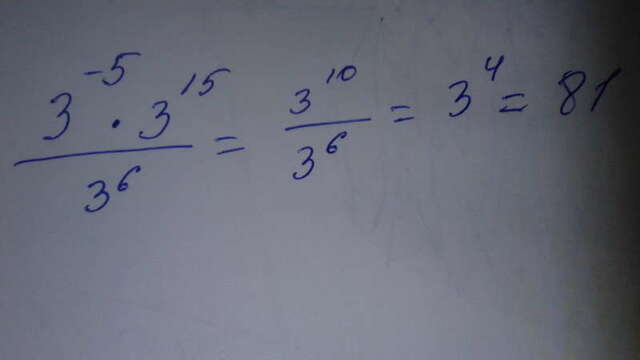 3^-5 · 3^15 / 3^6 = 3^10 / 3^6 = 3^4 = 81